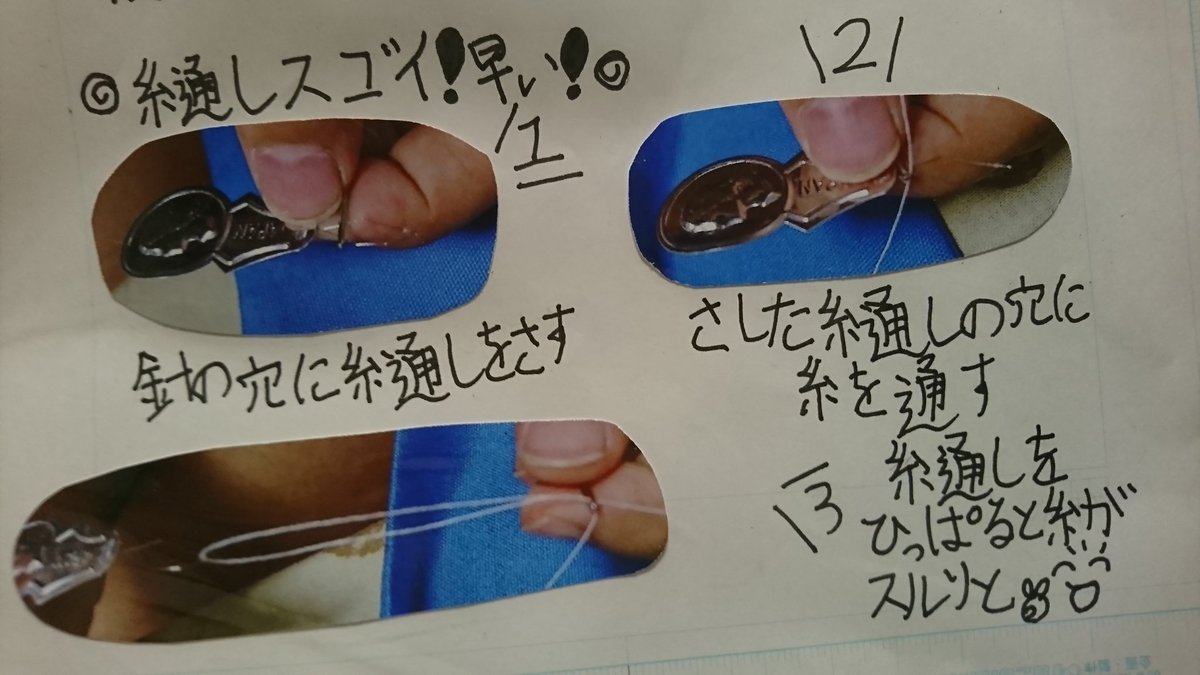 ◎糸通しスゴイ!早い!◎
1
針の穴に糸通しをさす
2
さした糸通しの穴に
糸を通す
3
糸通しを
ひっぱると糸が
スルリと
JAPAN